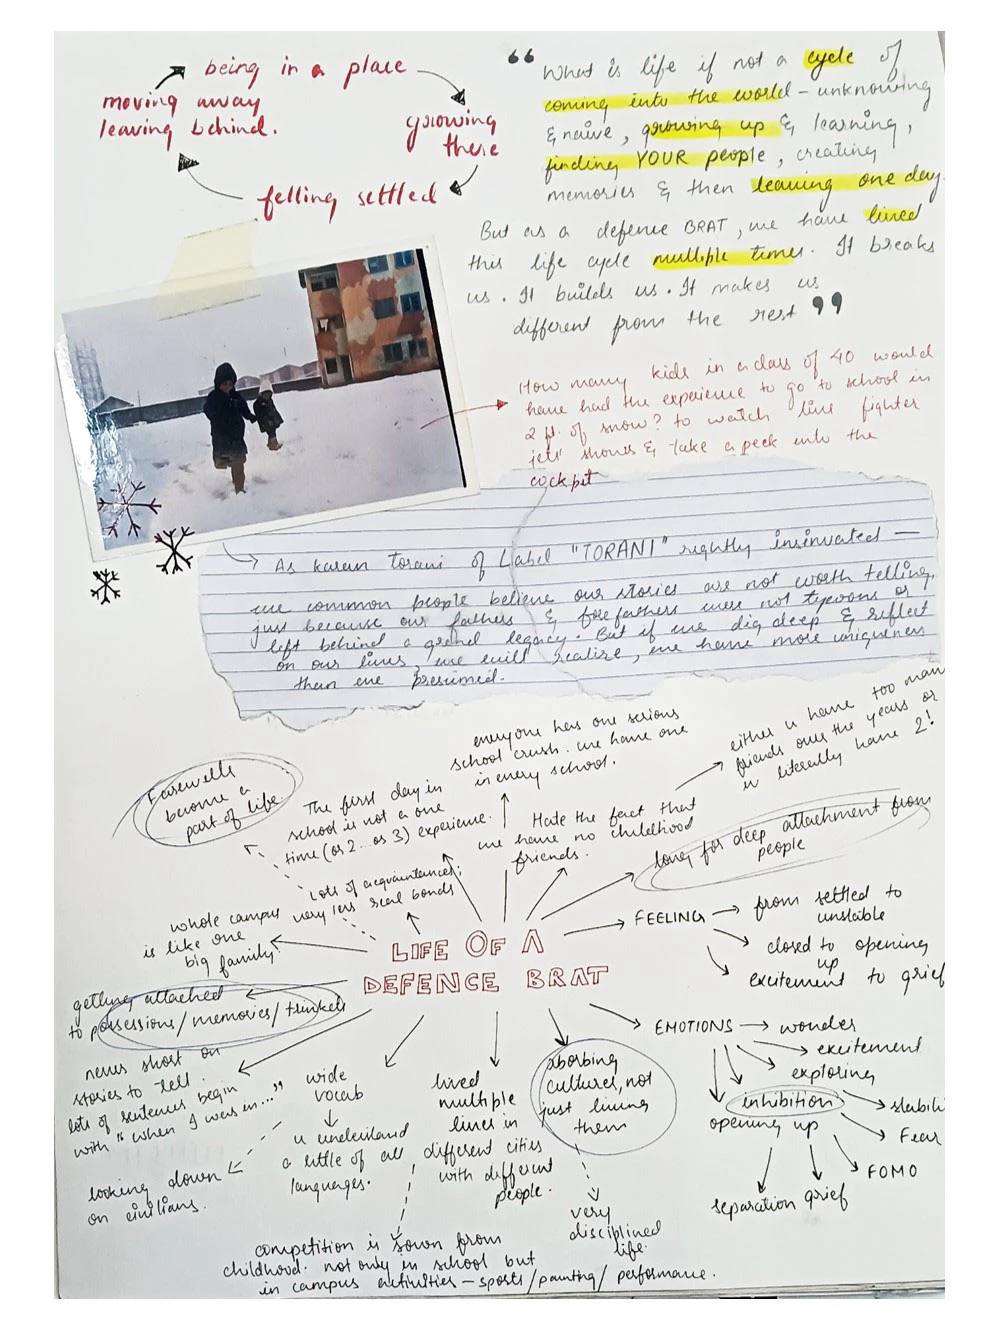 being in a place
growing
there
felling settled
moving away
leaving behind.
“ What is life if not a cycle of
coming into the world - unknowing
& naive, growing up & learning,
finding YOUR people, creating
memories & then leaving one day.
But as a defence BRAT, we have lived
this life cycle multiple times. It breaks
us. It builds us. It makes us
different from the rest ”
How many kids in a class of 40 would
have had the experience to go to school in
2 ft. of snow? to watch live fighter
jets' shows & take a peek into the
cockpit
As karan Torani of Label "TORANI" rightly insinuated —
we common people believe our stories are not worth telling,
just because our fathers & forefathers were not tycoons or
left behind a grand legacy. But if we dig deep & reflect
on our lives, we will realize, we have more uniqueness
than we presumed.
Farewells
become a
part of life
The first day in
school is not a one
time (or 2... or 3) experience.
everyone has one serious
school crush. we have one
in every school.
Hate the fact that
we have no childhood
friends.
either u have too many
friends over the years or
u literally have 2!
long for deep attachment from
people
Lots of acquaintances;
very less real bonds
whole campus
is like one
big family.
LIFE OF A
DEFENCE BRAT
FEELING
from settled to
unstable
closed to opening
up
excitement to grief
getting attached
to possessions/memories/trinkets
never short on
stories to tell.
lots of sentences begin
with "when I was in..."
looking down
on civilians.
wide
vocab
u understand
a little of all
languages.
lived
multiple
lives in
different cities
with different
people.
absorbing
cultures, not
just living
them
very
disciplined
life.
EMOTIONS
wonder
excitement
exploring
inhibition
opening up
stabili
Fear
FOMO
separation
grief
competition is sown from
childhood. not only in school but
in campus activities — sports/painting/performance.